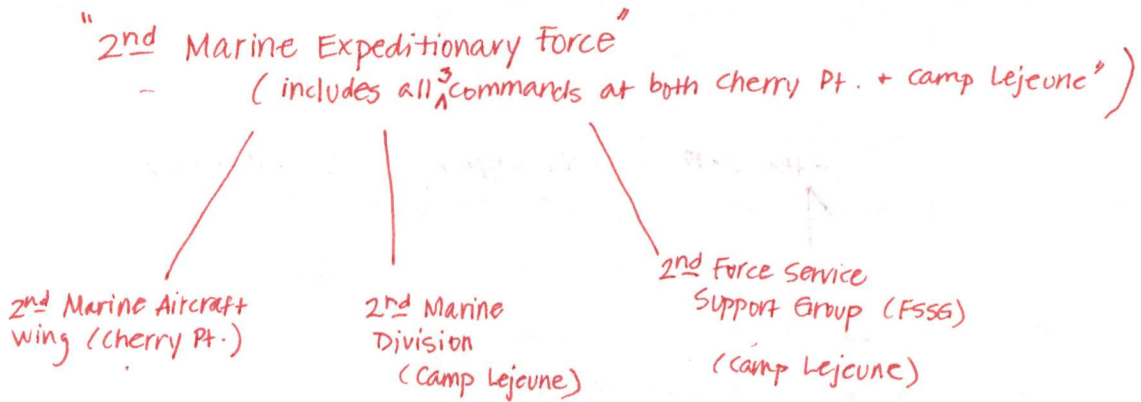 "2nd Marine Expeditionary Force"
- (includes all 3 commands at both Cherry Pt. + Camp Lejeune")
2nd Marine Aircraft
Wing (Cherry Pt.)
2nd Marine
Division
(Camp Lejeune)
2nd Force Service
Support Group (FSSG)
(Camp Lejeune)